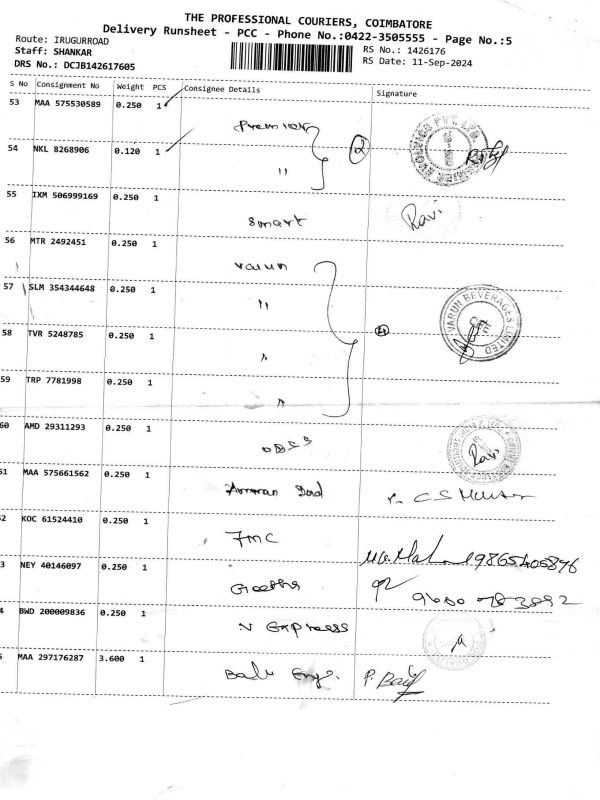 THE PROFESSIONAL COURIERS, COIMBATORE
Delivery Runsheet - PCC - Phone No.:0422-3505555 - Page No.:5
Route: IRUGURROAD
RS No.: 1426176
Staff: SHANKAR
RS Date: 11-Sep-2024
DRS No.: DCJB142617605
S No Consignment No Weight PCS Consignee Details Signature
53 MAA 575530589 0.250 1
54 NKL 8268906 0.120 1 " 2
55 IXM 506999169 0.250 1 Smart Ravi
56 MTR 2492451 0.250 1 Varun
57 SLM 354344648 0.250 1 " VARUN BEVERAGES LIMITED
58 TVR 5248785 0.250 1 " 4
59 TRP 7781998 0.250 1 "
60 AMD 29311293 0.250 1 Ravi
51 MAA 575661562 0.250 1
52 KOC 61524410 0.250 1 FMC
3 NEY 40146097 0.250 1 Geetha
4 BWD 200009836 0.250 1 V Express
5 MAA 297176287 3.600 1 Balu Eng.